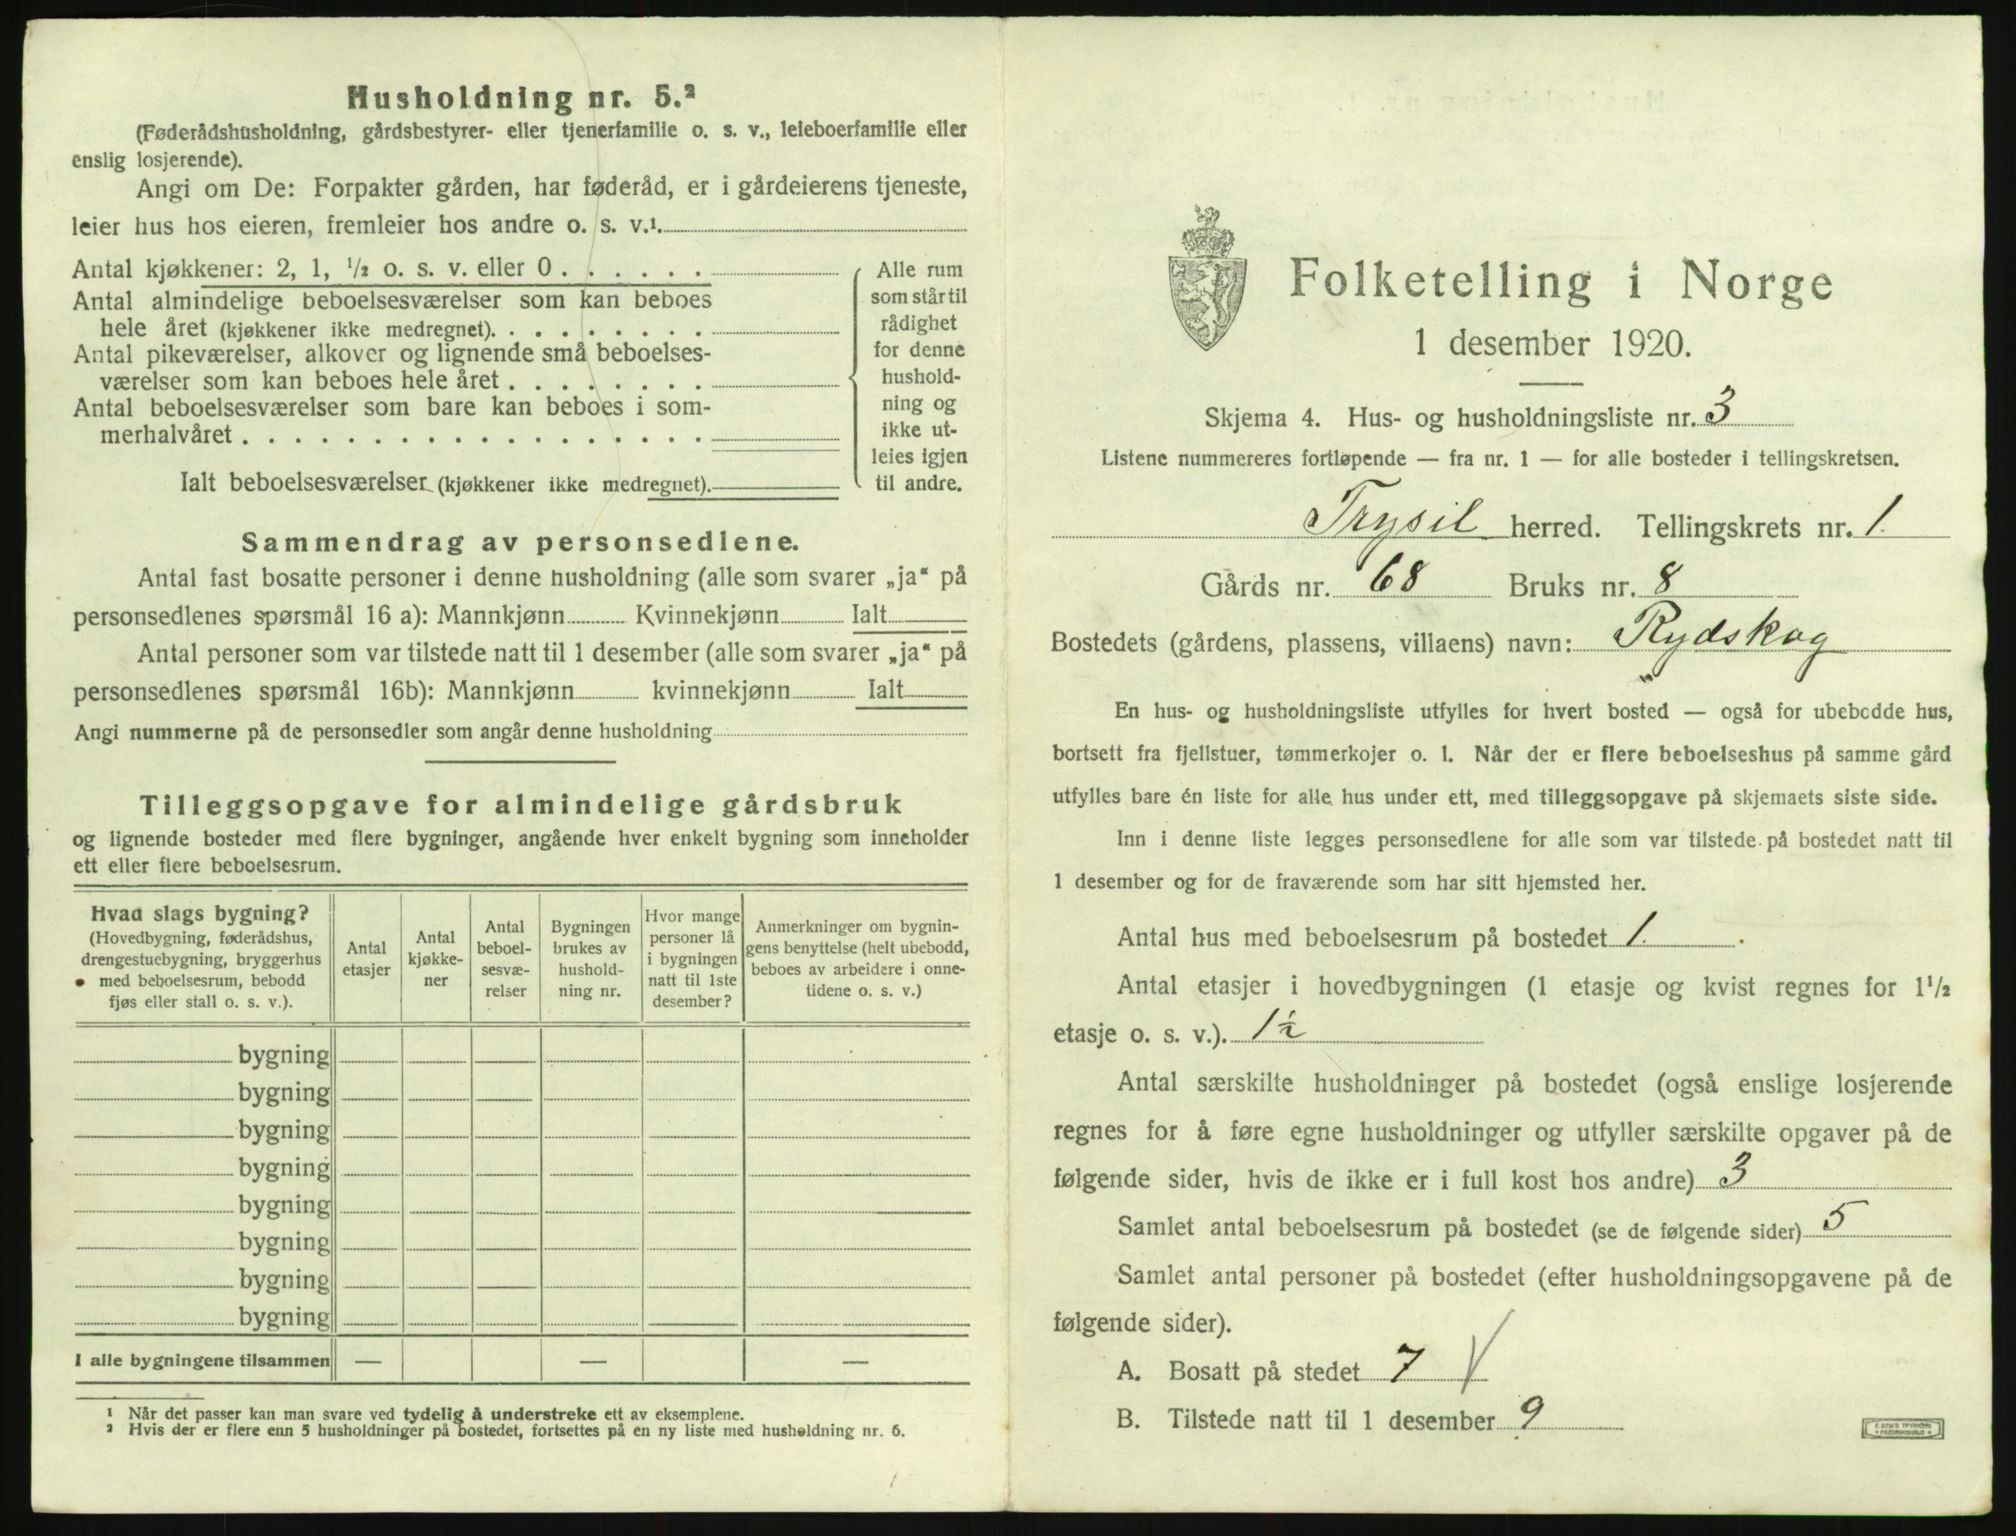 Husholdning nr. 5.²
(Føderådshusholdning, gårdsbestyrer- eller tjenerfamilie o. s. v., leieboerfamilie eller
enslig losjerende).
Angi om De: Forpakter gården, har føderåd, er i gårdeierens tjeneste,
leier hus hos eieren, fremleier hos andre o. s. v.¹
Antal kjøkkener: 2, 1, ½ o. s. v. eller 0 . . . . . .
Antal almindelige beboelsesværelser som kan beboes
hele året (kjøkkener ikke medregnet). . . . . . . . .
Antal pikeværelser, alkover og lignende små beboelses-
værelser som kan beboes hele året . . . . . . . .
Antal beboelsesværelser som bare kan beboes i som-
merhalvåret . . . . . . . . . . . . . . . . . .
Ialt beboelsesværelser (kjøkkener ikke medregnet).
Alle rum
som står til
rådighet
for denne
hushold-
ning og
ikke ut-
leies igjen
til andre.
Sammendrag av personsedlene.
Antal fast bosatte personer i denne husholdning (alle som svarer „ja“ på
personsedlenes spørsmål 16 a): Mannkjønn Kvinnekjønn Ialt
Antal personer som var tilstede natt til 1 desember (alle som svarer „ja“ på
personsedlenes spørsmål 16b): Mannkjønn kvinnekjønn Ialt
Angi nummerne på de personsedler som angår denne husholdning
Tilleggsopgave for almindelige gårdsbruk
og lignende bosteder med flere bygninger, angående hver enkelt bygning som inneholder
ett eller flere beboelsesrum.
Hvad slags bygning?
(Hovedbygning, føderådshus,
drengestuebygning, bryggerhus
med beboelsesrum, bebodd
fjøs eller stall o. s. v.).
Antal
etasjer
Antal
kjøkke-
ner
Antal
beboel-
sesvæ-
relser
Bygningen
brukes av
hushold-
ning nr.
Hvor mange
personer lå
i bygningen
natt til 1ste
desember?
Anmerkninger om bygnin-
gens benyttelse (helt ubebodd,
beboes av arbeidere i onne-
tidene o. s. v.)
bygning
bygning
bygning
bygning
bygning
bygning
bygning
bygning
I alle bygningene tilsammen — — —
¹ Når det passer kan man svare ved tydelig å understreke ett av eksemplene.
² Hvis der er flere enn 5 husholdninger på bostedet, fortsettes på en ny liste med husholdning nr. 6.
Folketelling i Norge
1 desember 1920.
Skjema 4. Hus- og husholdningsliste nr. 3
Listene nummereres fortløpende — fra nr. 1 — for alle bosteder i tellingskretsen.
Trysil herred. Tellingskrets nr. 1.
Gårds nr. 68 Bruks nr. 8
Bostedets (gårdens, plassens, villaens) navn: Rydskog
En hus- og husholdningsliste utfylles for hvert bosted — også for ubebodde hus,
bortsett fra fjellstuer, tømmerkojer o. l. Når der er flere beboelseshus på samme gård
utfylles bare én liste for alle hus under ett, med tilleggsopgave på skjemaets siste side.
Inn i denne liste legges personsedlene for alle som var tilstede på bostedet natt til
1 desember og for de fraværende som har sitt hjemsted her.
Antal hus med beboelsesrum på bostedet 1.
Antal etasjer i hovedbygningen (1 etasje og kvist regnes for 1½
etasje o. s. v.). 1½
Antal særskilte husholdninger på bostedet (også enslige losjerende
regnes for å føre egne husholdninger og utfyller særskilte opgaver på de
følgende sider, hvis de ikke er i full kost hos andre) 3
Samlet antal beboelsesrum på bostedet (se de følgende sider) 5
Samlet antal personer på bostedet (efter husholdningsopgavene på de
følgende sider).
A. Bosatt på stedet 7
B. Tilstede natt til 1 desember 9